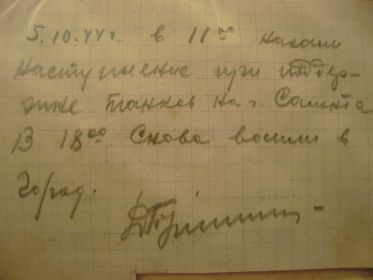 5.10.44г. в 11⁰⁰ начали
наступление при поддер-
жке танков на г. Салонта
В 18⁰⁰ снова вошли в
город.